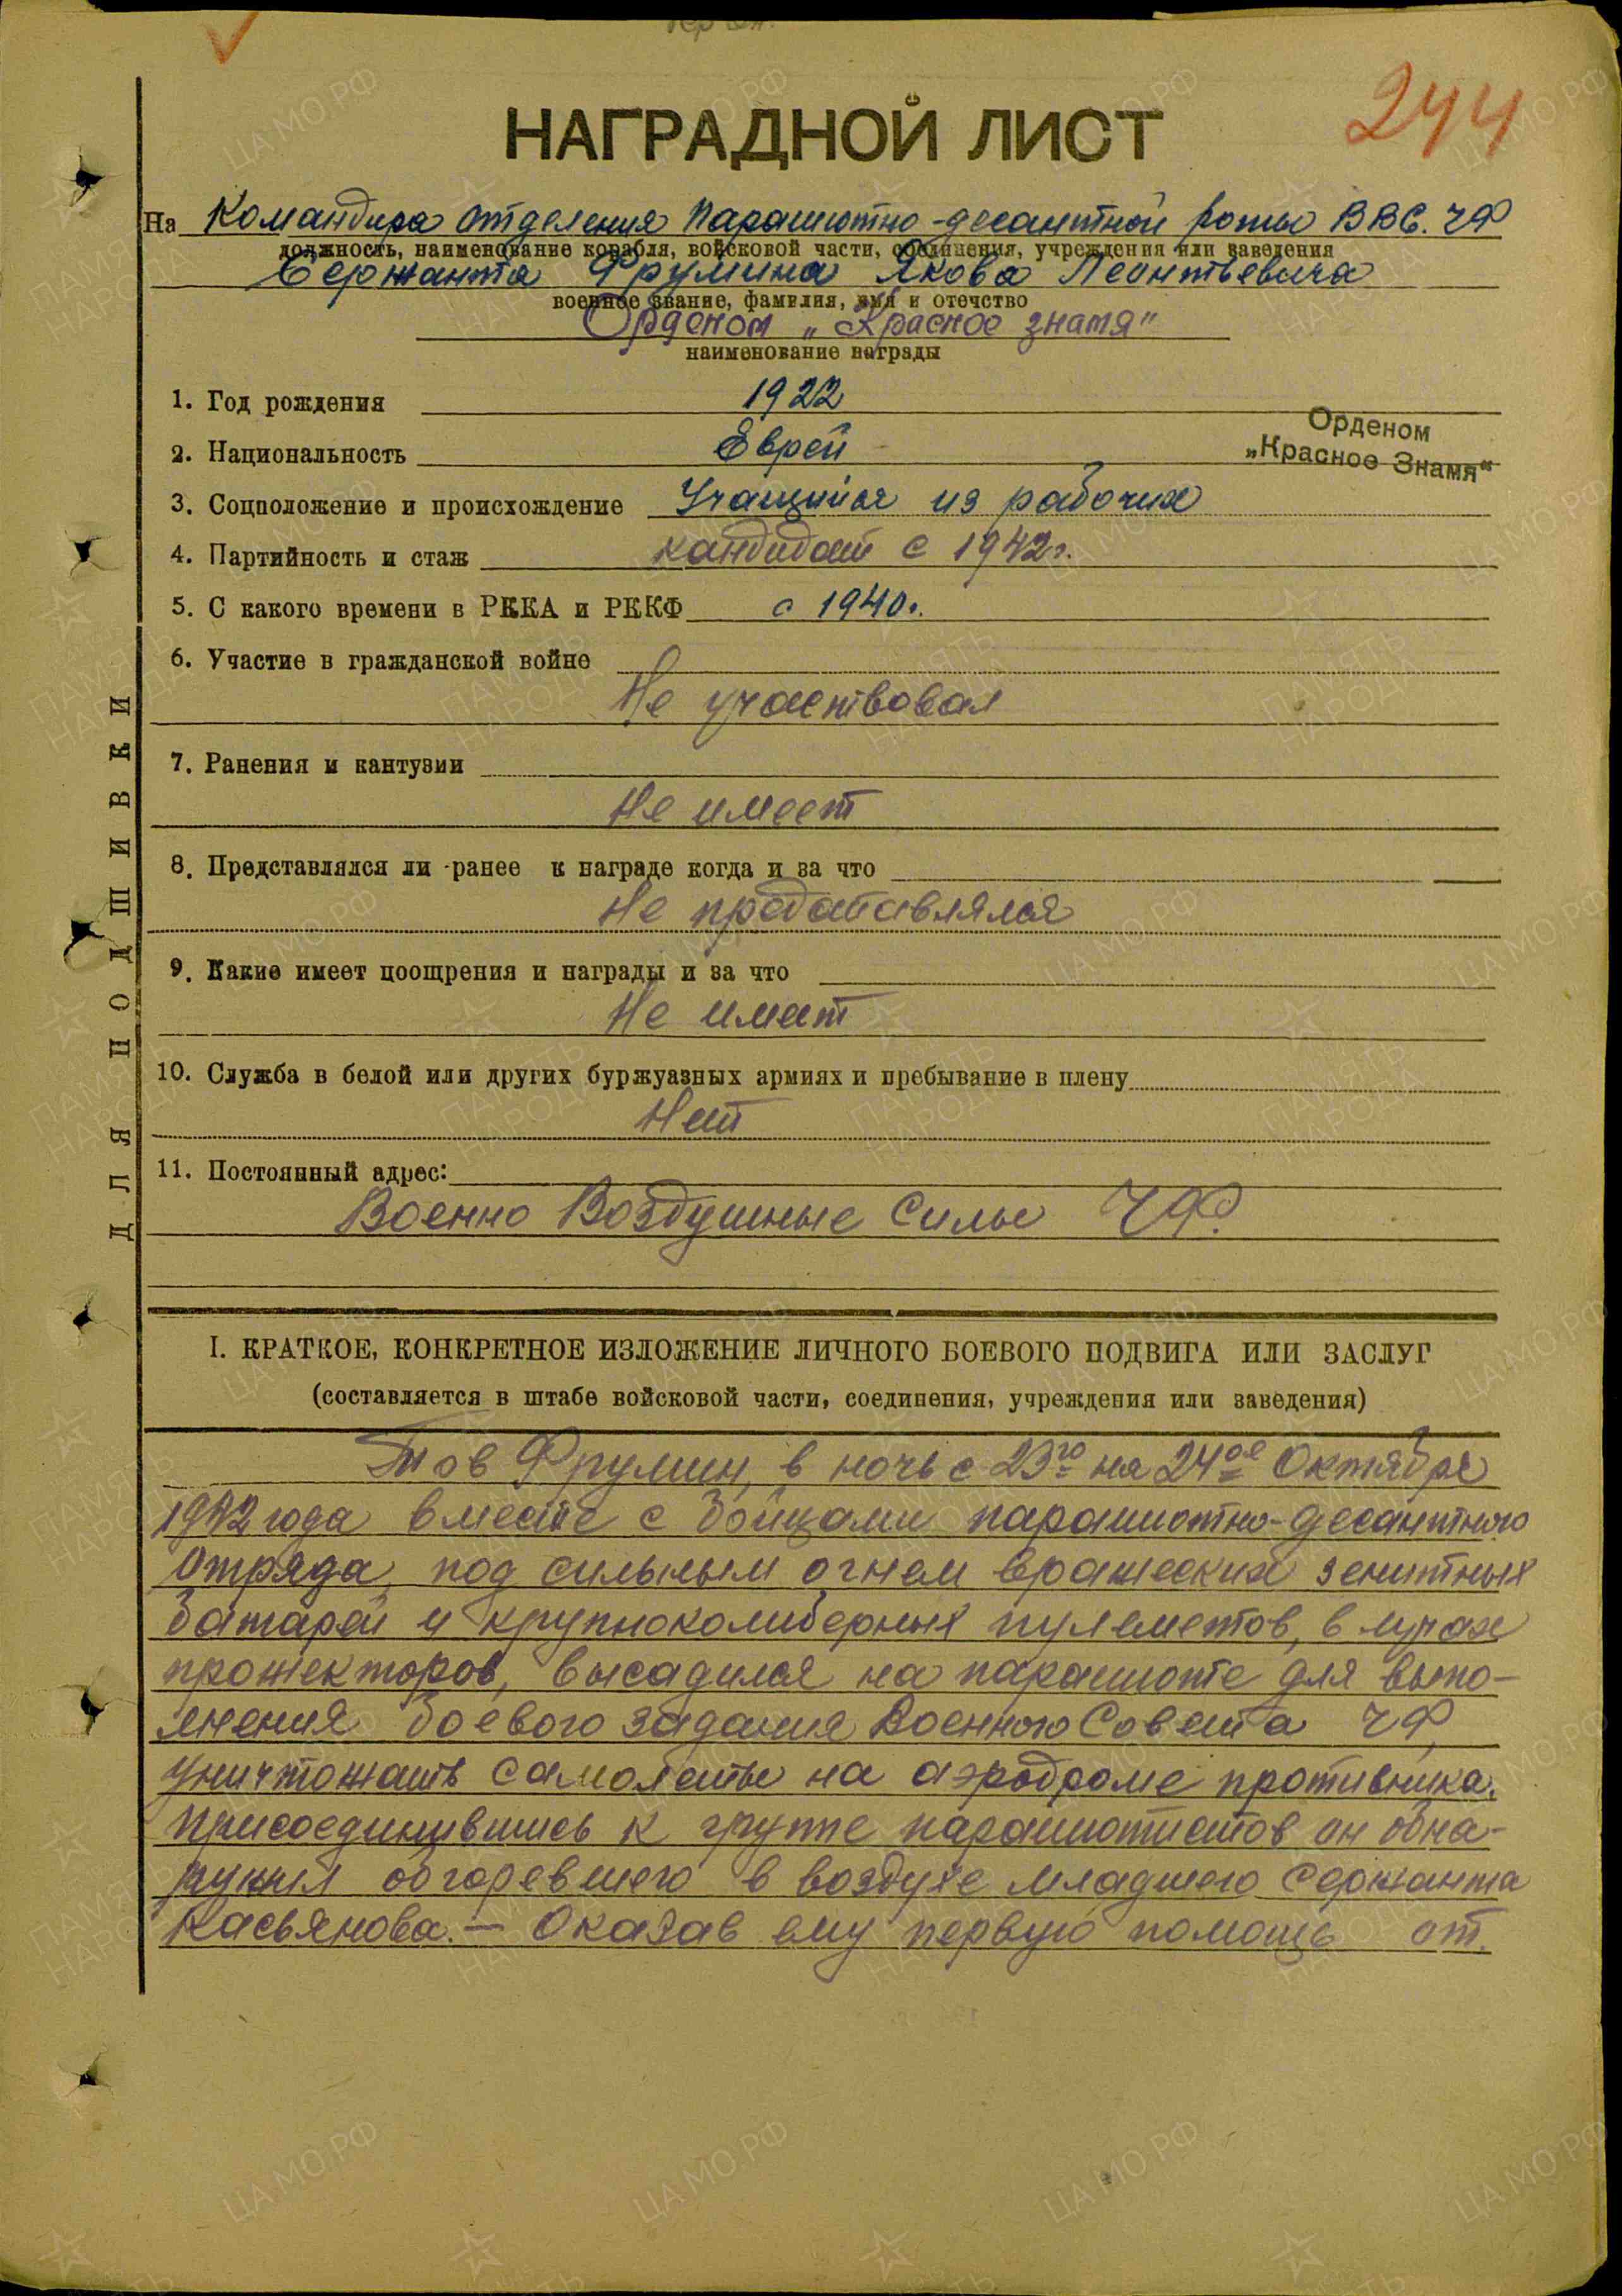 244
НАГРАДНОЙ ЛИСТ
На Командира отделения Парашютно-десантной роты ВВС. ЧФ
должность, наименование корабля, войсковой части, соединения, учреждения или заведения
Сержанта Фрумина Якова Леонтьевича
военное звание, фамилия, имя и отечство
Орденом „Красное знамя"
наименование награды
1. Год рождения 1922
Орденом
2. Национальность Еврей
„Красное Знамя"
3. Соцположение и происхождение Учащийся из рабочих
4. Партийность и стаж кандидат с 1942г.
5. С какого времени в РККА и РККФ с 1940г.
6. Участие в гражданской войне
Не участвовал
7. Ранения и кантузии
Не имеет
8. Представлялся ли ранее к награде когда и за что
Не представлялся
9. Какие имеет поощрения и награды и за что
Не имеет
10. Служба в белой или других буржуазных армиях и пребывание в плену
Нет
11. Постоянный адрес:
Военно Воздушные Силы ЧФ.
ДЛЯ ПОДШИВКИ
I. КРАТКОЕ, КОНКРЕТНОЕ ИЗЛОЖЕНИЕ ЛИЧНОГО БОЕВОГО ПОДВИГА ИЛИ ЗАСЛУГ
(составляется в штабе войсковой части, соединения, учреждения или заведения)
Тов Фрумин, в ночь с 23го на 24ое Октября
1942 года вместе с бойцами парашютно-десантного
отряда, под сильным огнем вражеских зенитных
батарей и крупнокалиберных пулеметов, в лучах
прожекторов, высадился на парашюте для выпо-
лнения боевого задания Военного Совета ЧФ,
уничтожать самолеты на аэродроме противника.
Присоединившись к группе парашютистов он обна-
ружил обгоревшего в воздухе младшего сержанта
Касьянова. — Оказав ему первую помощь от.
ЦАМО.РФ
ПАМЯТЬ НАРОДА